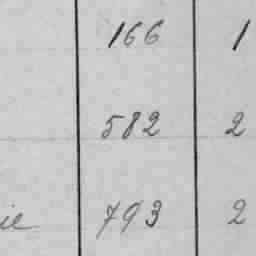 166 1
582 2
793 2